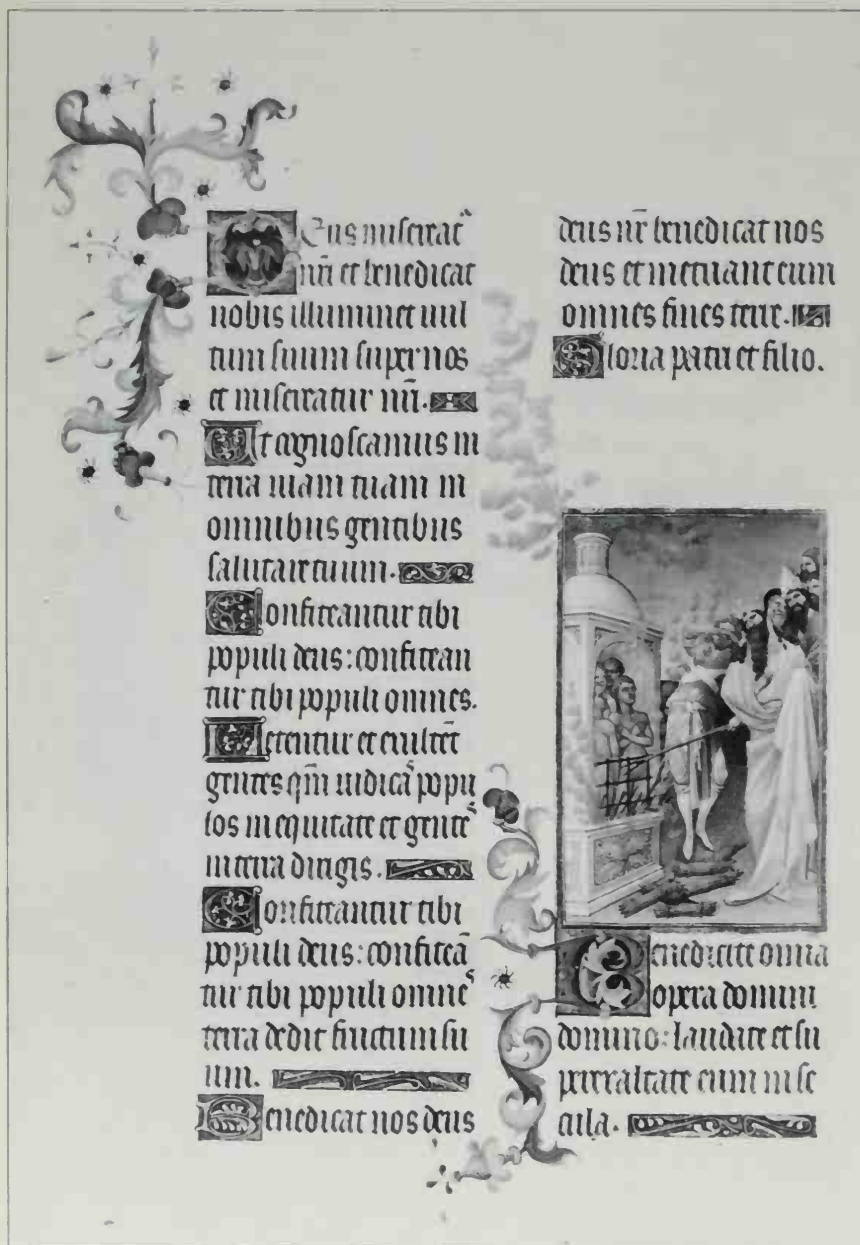 Deus misereat᷒
nr̄i et benedicat
nobis illuminet uul
tum suum super nos
et misereatur nr̄i.
Ut cognoscamus in
terra uiam tuam in
omnibus gentibus
salutare tuum.
Confiteantur tibi
populi deus: confitean
tur tibi populi omnes.
Letentur et exultēt
gentes qm̄ iudica᷒ popu
los in equitate et gente᷒
in terra dirigis.
Confiteantur tibi
populi deus: confiteā
tur tibi populi omne᷒
terra dedit fructum su
um.
Benedicat nos deus
deus nr̄ benedicat nos
deus et metuant eum
omnes fines terre.
Gloria patri et filio.
Benedicite omnia
opera domini
domino: laudate et su
perexaltate eum in se
cula.